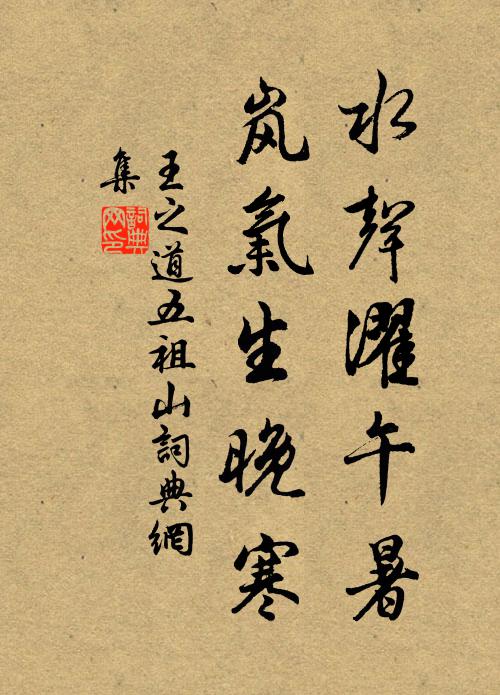 水聲濯午暑
岚氣生晚寒
王之道五祖山詞典網
集
詞典网印